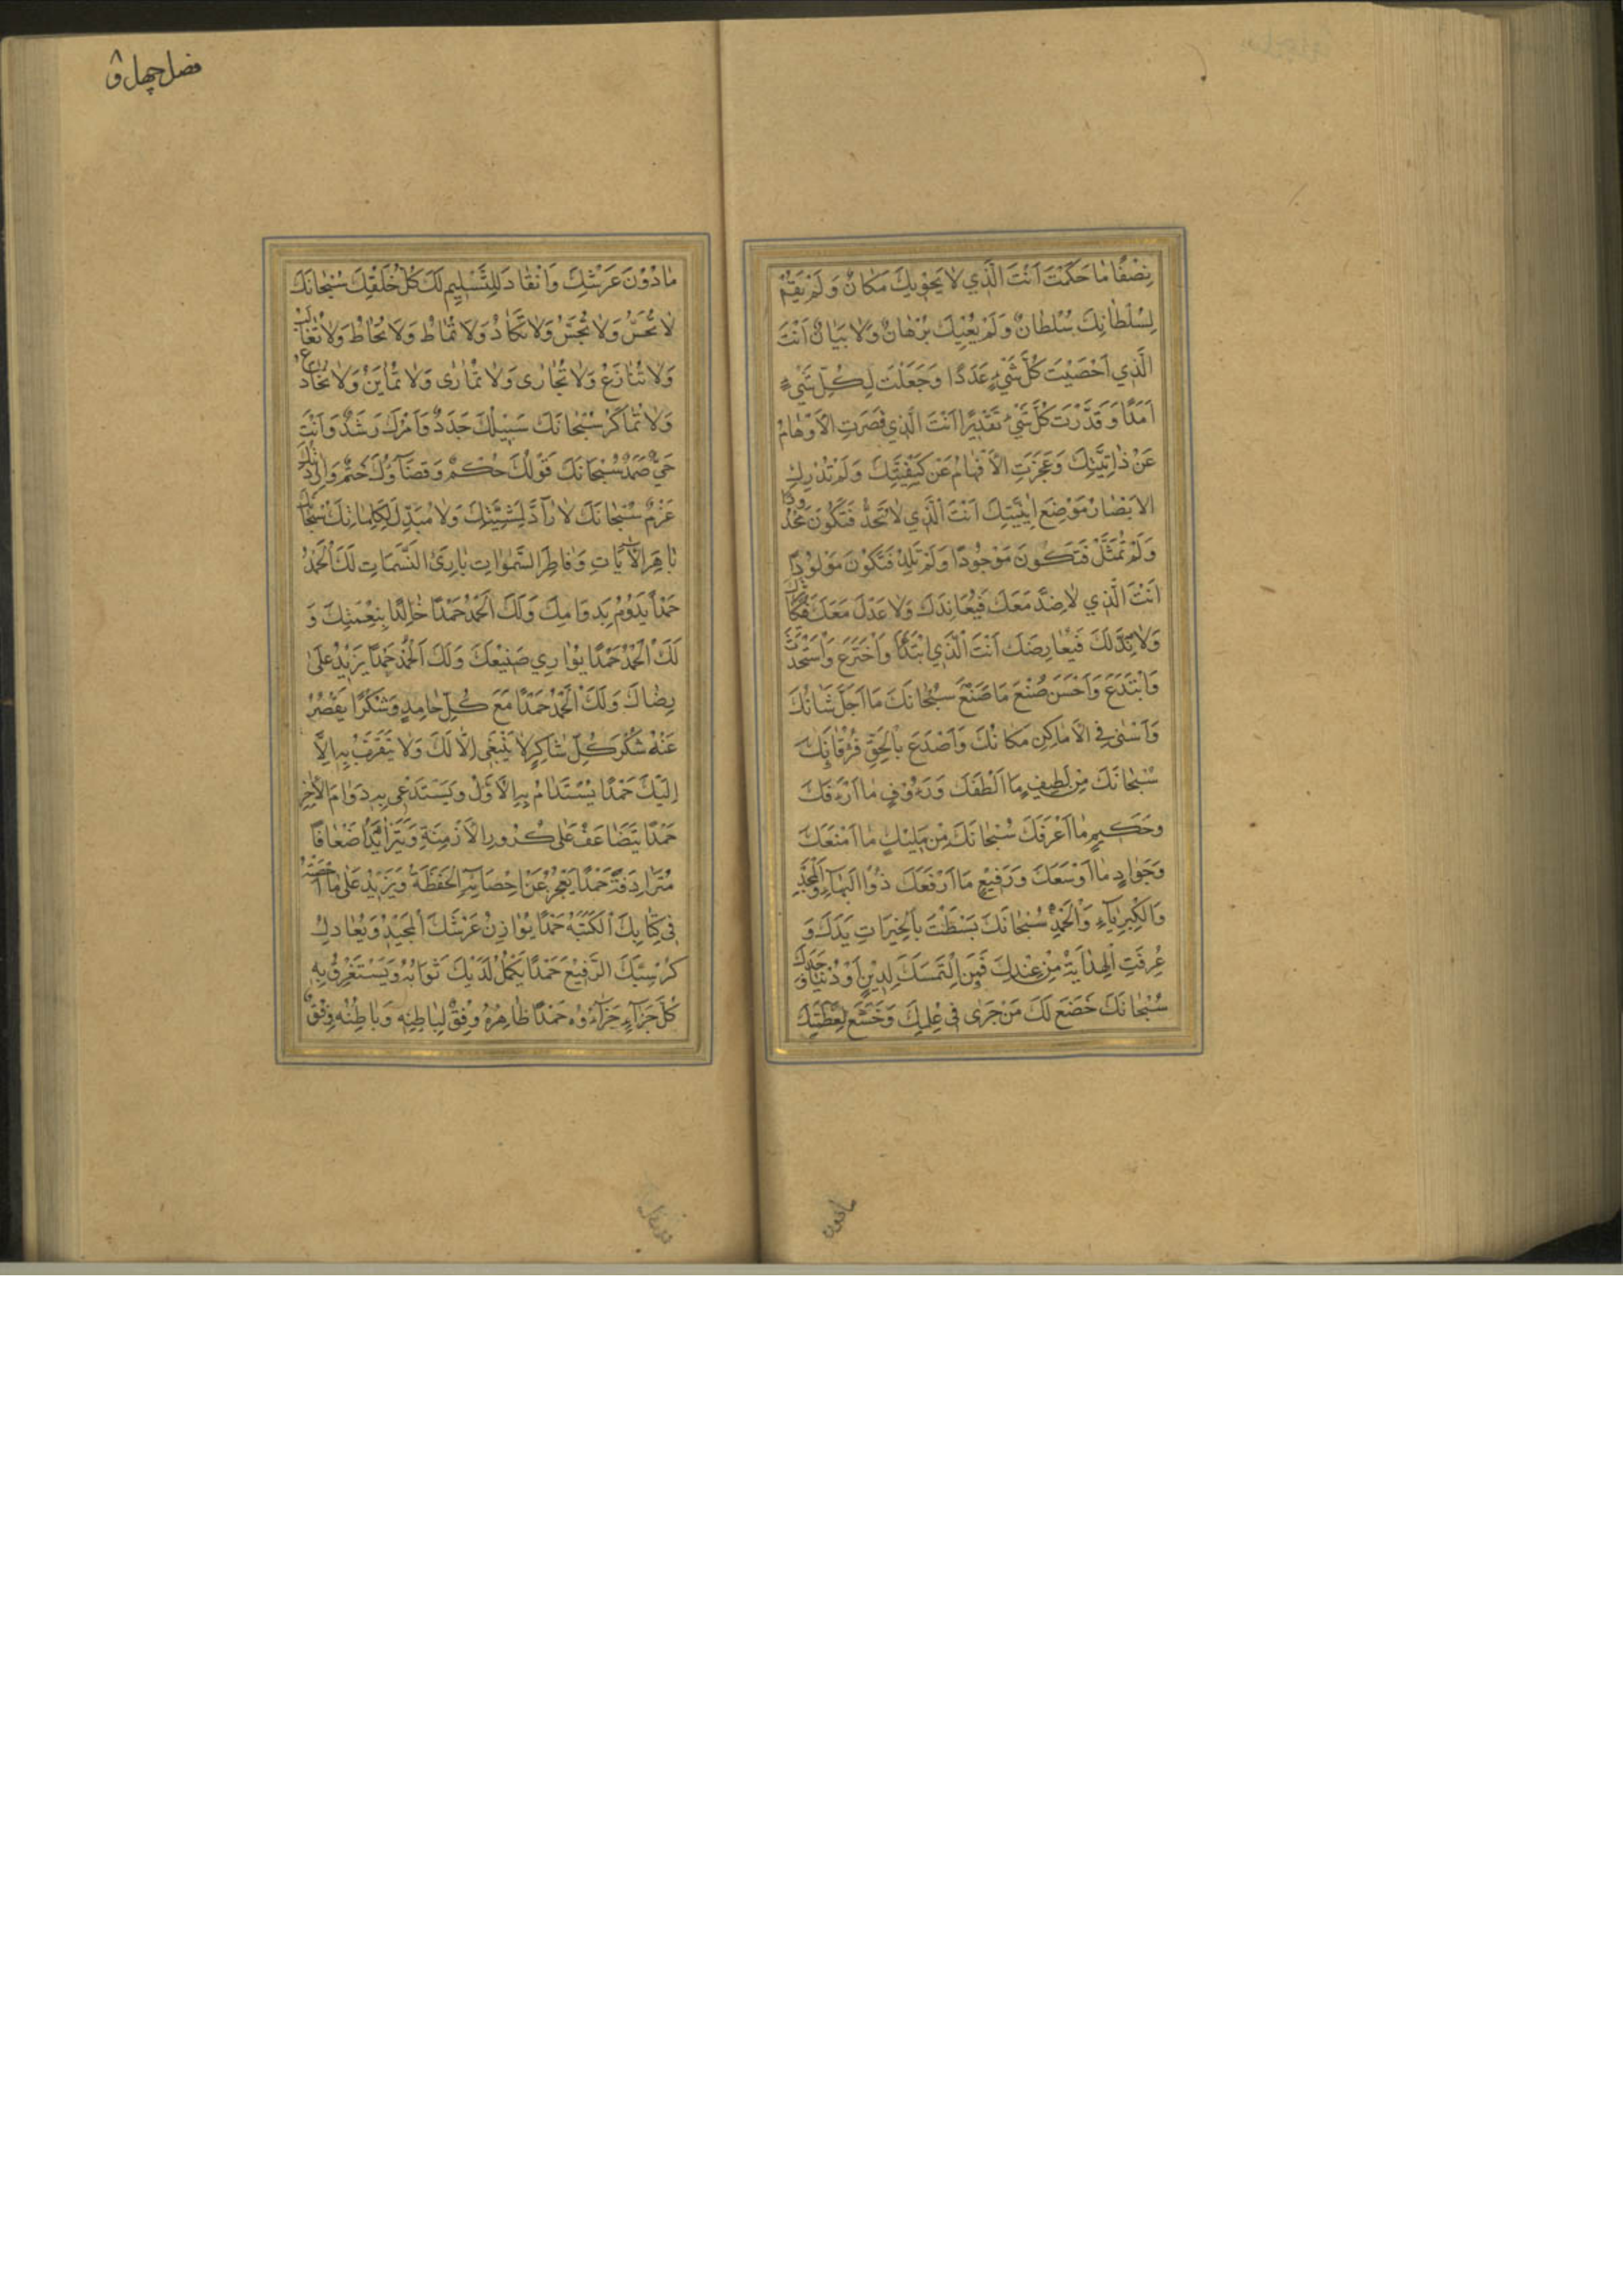 نِصْفًا مَا حَكَمْتَ اَنْتَ الَّذِي لَا يَحْوِيكَ مَكَانٌ وَلَمْ يَقُمْ
لِسُلْطَانِكَ سُلْطَانٌ وَلَمْ يُعْيِكَ بُرْهَانٌ وَلَا بَيَانٌ اَنْتَ
الَّذِي اَحْصَيْتَ كُلَّ شَيْءٍ عَدَدًا وَجَعَلْتَ لِكُلِّ شَيْءٍ
اَمَدًا وَقَدَّرْتَ كُلَّ شَيْءٍ تَقْدِيرًا اَنْتَ الَّذِي قَصُرَتِ الْاَوْهَامُ
عَنْ ذَاتِيَّتِكَ وَعَجَزَتِ الْاَفْهَامُ عَنْ كَيْفِيَّتِكَ وَلَمْ تُدْرِكِ
الْاَبْصَارُ مَوْضِعَ اَيْنِيَّتِكَ اَنْتَ الَّذِي لَا تُحَدُّ فَتَكُونَ مَحْدُودًا
وَلَمْ تُمَثَّلْ فَتَكُونَ مَوْجُودًا وَلَمْ تَلِدْ فَتَكُونَ مَوْلُودًا
اَنْتَ الَّذِي لَا ضِدَّ مَعَكَ فَيُعَانِدَكَ وَلَا عَدْلَ مَعَكَ فَيُكَاثِرَكَ
وَلَا نِدَّ لَكَ فَيُعَارِضَكَ اَنْتَ الَّذِي ابْتَدَأَ وَاخْتَرَعَ وَاسْتَحْدَثَ
وَابْتَدَعَ وَاَحْسَنَ صُنْعَ مَا صَنَعَ سُبْحَانَكَ مَا اَجَلَّ شَانَكَ
وَاَسْنٰى فِي الْاَمَاكِنِ مَكَانَكَ وَاَصْدَعَ بِالْحَقِّ فُرْقَانَكَ
سُبْحَانَكَ مِنْ لَطِيفٍ مَا اَلْطَفَكَ وَرَءُوفٍ مَا اَرْءَفَكَ
وَحَكِيمٍ مَا اَعْرَفَكَ سُبْحَانَكَ مِنْ مَلِيكٍ مَا اَمْنَعَكَ
وَجَوَادٍ مَا اَوْسَعَكَ وَرَفِيعٍ مَا اَرْفَعَكَ ذُوا الْبَهَاءِ وَالْمَجْدِ
وَالْكِبْرِيَاءِ وَالْحَمْدِ سُبْحَانَكَ بَسَطْتَ بِالْخَيْرَاتِ يَدَكَ وَ
عُرِفَتِ الْهِدَايَةُ مِنْ عِنْدِكَ فَمَنِ الْتَمَسَكَ لِدِينٍ اَوْ دُنْيَا وَجَدَكَ
سُبْحَانَكَ خَضَعَ لَكَ مَنْ جَرٰى فِي عِلْمِكَ وَخَشَعَ لِعَظَمَتِكَ
مادون
فصل چهل و
مَا دُونَ عَرْشِكَ وَانْقَادَ لِلتَّسْلِيمِ لَكَ كُلُّ خَلْقِكَ سُبْحَانَكَ
لَا تُحَسُّ وَلَا تُجَسُّ وَلَا تُكَادُ وَلَا تُمَاطُ وَلَا تُحَاطُ وَلَا تُغَالَبُ
وَلَا تُنَازَعُ وَلَا تُجَارٰى وَلَا تُمَارٰى وَلَا تُمَايَنُ وَلَا تُخَادَعُ
وَلَا تُمَاكَرُ سُبْحَانَكَ سَبِيلُكَ جَدَدٌ وَاَمْرُكَ رَشَدٌ وَاَنْتَ
حَيٌّ صَمَدٌ سُبْحَانَكَ قَوْلُكَ حُكْمٌ وَقَضَاؤُكَ حَتْمٌ وَاِرَادَتُكَ
عَزْمٌ سُبْحَانَكَ لَا رَادَّ لِمَشِيَّتِكَ وَلَا مُبَدِّلَ لِكَلِمَاتِكَ سُبْحَانَكَ
بَاهِرَ الْاٰيَاتِ وَفَاطِرَ السَّمٰوَاتِ بَارِئَ النَّسَمَاتِ لَكَ الْحَمْدُ
حَمْدًا يَدُومُ بِدَوَامِكَ وَلَكَ الْحَمْدُ حَمْدًا خَالِدًا بِنِعْمَتِكَ وَ
لَكَ الْحَمْدُ حَمْدًا يُوَازِي صَنِيعَكَ وَلَكَ الْحَمْدُ حَمْدًا يَزِيدُ عَلٰى
رِضَاكَ وَلَكَ الْحَمْدُ حَمْدًا مَعَ كُلِّ حَامِدٍ وَشُكْرًا يَقْصُرُ
عَنْهُ شُكْرُ كُلِّ شَاكِرٍ لَا يَنْبَغِي اِلَّا لَكَ وَلَا يُتَقَرَّبُ بِهِ اِلَّا
اِلَيْكَ حَمْدًا يُسْتَدَامُ بِهِ الْاَوَّلُ وَيُسْتَدْعٰى بِهِ دَوَامُ الْاٰخِرِ
حَمْدًا يَتَضَاعَفُ عَلٰى كُرُورِ الْاَزْمِنَةِ وَيَتَزَايَدُ اَضْعَافًا
مُتَرَادِفَةً حَمْدًا يَعْجِزُ عَنْ اِحْصَائِهِ الْحَفَظَةُ وَيَزِيدُ عَلٰى مَا اَحْصَتْهُ
فِي كِتَابِكَ الْكَتَبَةُ حَمْدًا يُوَازِنُ عَرْشَكَ الْمَجِيدَ وَيُعَادِلُ
كُرْسِيَّكَ الرَّفِيعَ حَمْدًا يَكْمُلُ لَدَيْكَ ثَوَابُهُ وَيَسْتَغْرِقُ بِهِ
كُلَّ جَزَاءٍ جَزَاؤُهُ حَمْدًا ظَاهِرُهُ وَفْقٌ لِبَاطِنِهِ وَبَاطِنُهُ وَفْقٌ